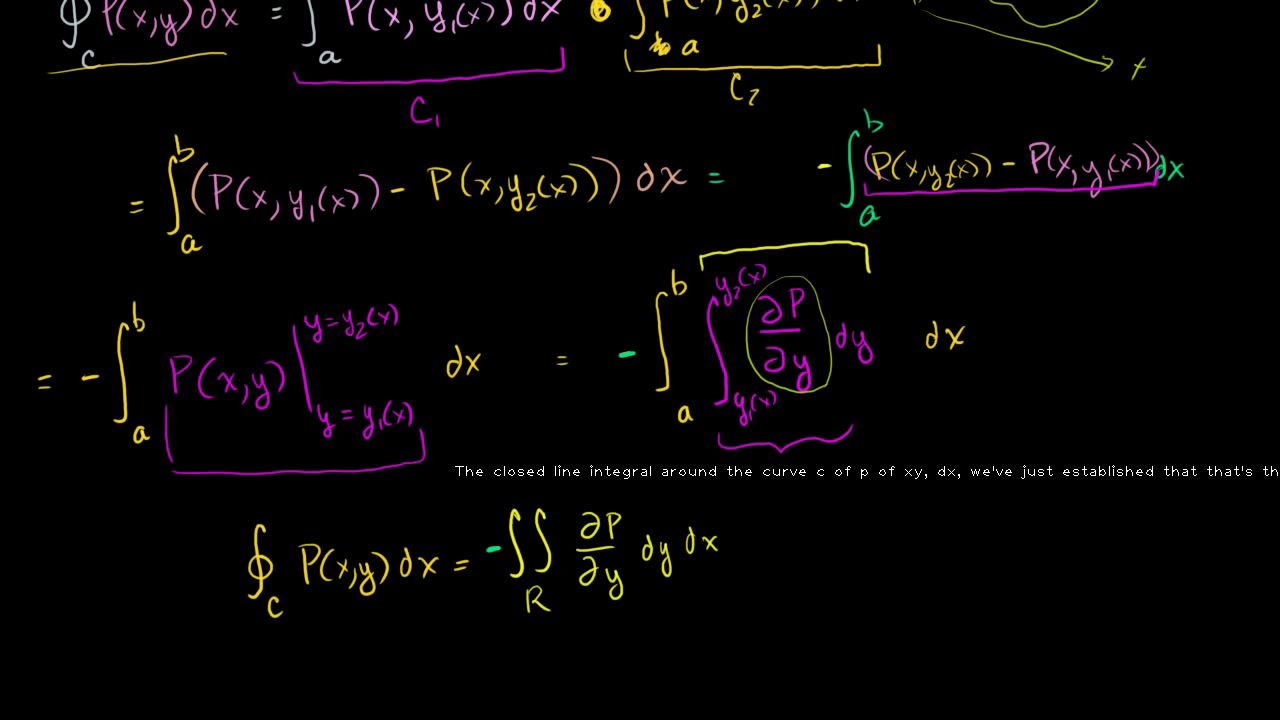 ∮_C P(x,y) dx = ∫_a P(x, y₁(x)) dx ∫_a
x
C₁ C₂
= ∫_a^b (P(x, y₁(x)) - P(x, y₂(x))) dx = - ∫_a^b (P(x, y₂(x)) - P(x, y₁(x))) dx
= - ∫_a^b P(x,y) |_{y = y₁(x)}^{y = y₂(x)} dx = - ∫_a^b ∫_{y₁(x)}^{y₂(x)} ∂P/∂y dy dx
The closed line integral around the curve c of p of xy, dx, we've just established that that's th
∮_C P(x,y) dx = - ∬_R ∂P/∂y dy dx